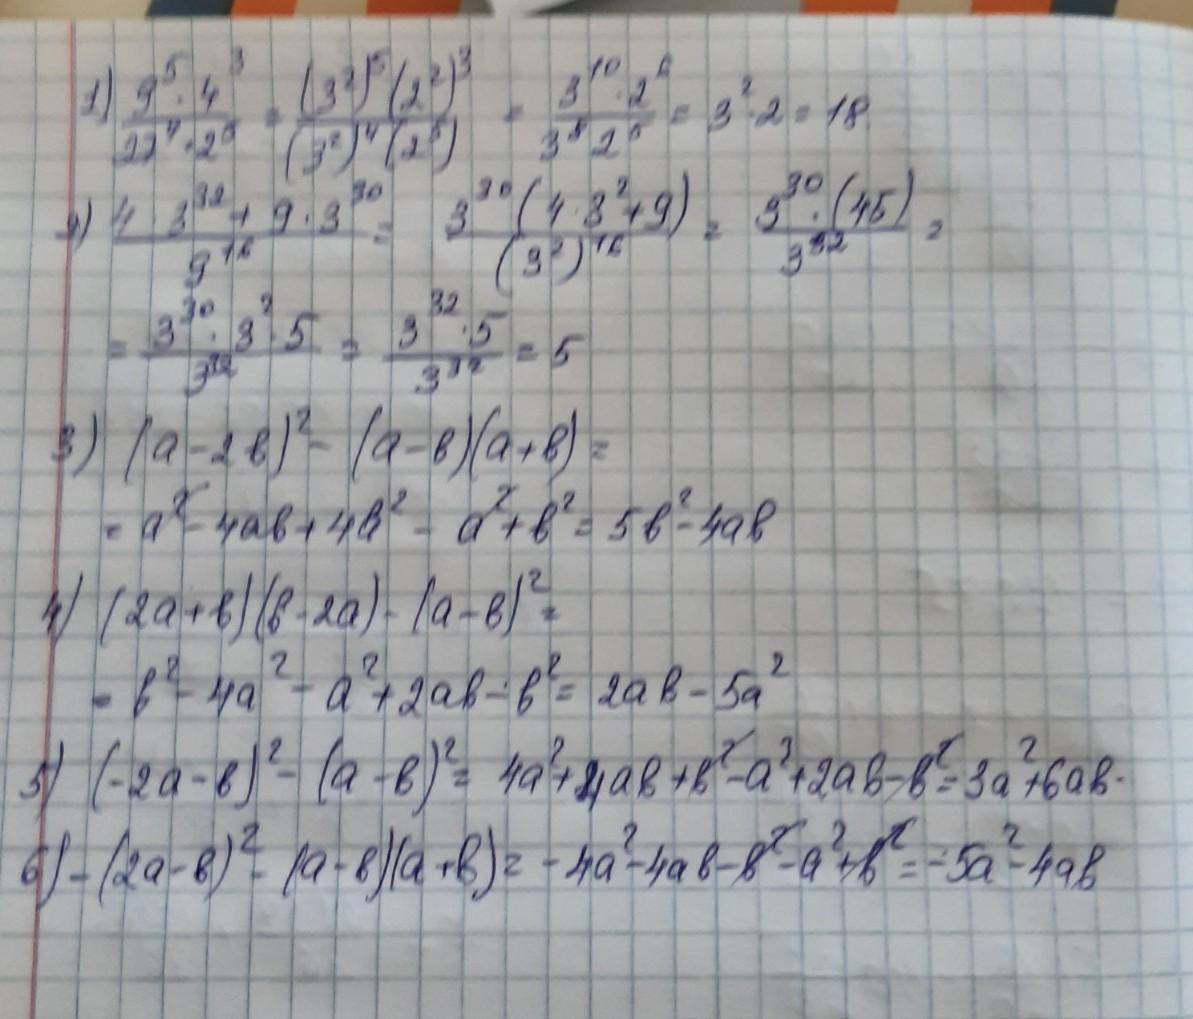 1) (9^5 · 4^3)/(27^4 · 2^5) = ((3^2)^5 (2^2)^3)/((3^2)^4 (2^5)) = (3^10 · 2^6)/(3^8 2^5) = 3^2 · 2 = 18
2) (4 · 3^32 + 9 · 3^30)/9^16 = (3^30 (4 · 3^2 + 9))/((3^2)^16) = (3^30 · (45))/3^32 =
= (3^30 · 3^2 · 5)/3^32 = (3^32 · 5)/3^32 = 5
3) (a - 2b)^2 - (a - b)(a + b) =
= a^2 - 4ab + 4b^2 - a^2 + b^2 = 5b^2 - 4ab
4) (2a + b)(b - 2a) - (a - b)^2 =
= b^2 - 4a^2 - a^2 + 2ab - b^2 = 2ab - 5a^2
5) (-2a - b)^2 - (a - b)^2 = 4a^2 + 4ab + b^2 - a^2 + 2ab - b^2 = 3a^2 + 6ab.
6) - (2a - b)^2 - (a - b)(a + b) = - 4a^2 - 4ab - b^2 - a^2 + b^2 = - 5a^2 - 4ab